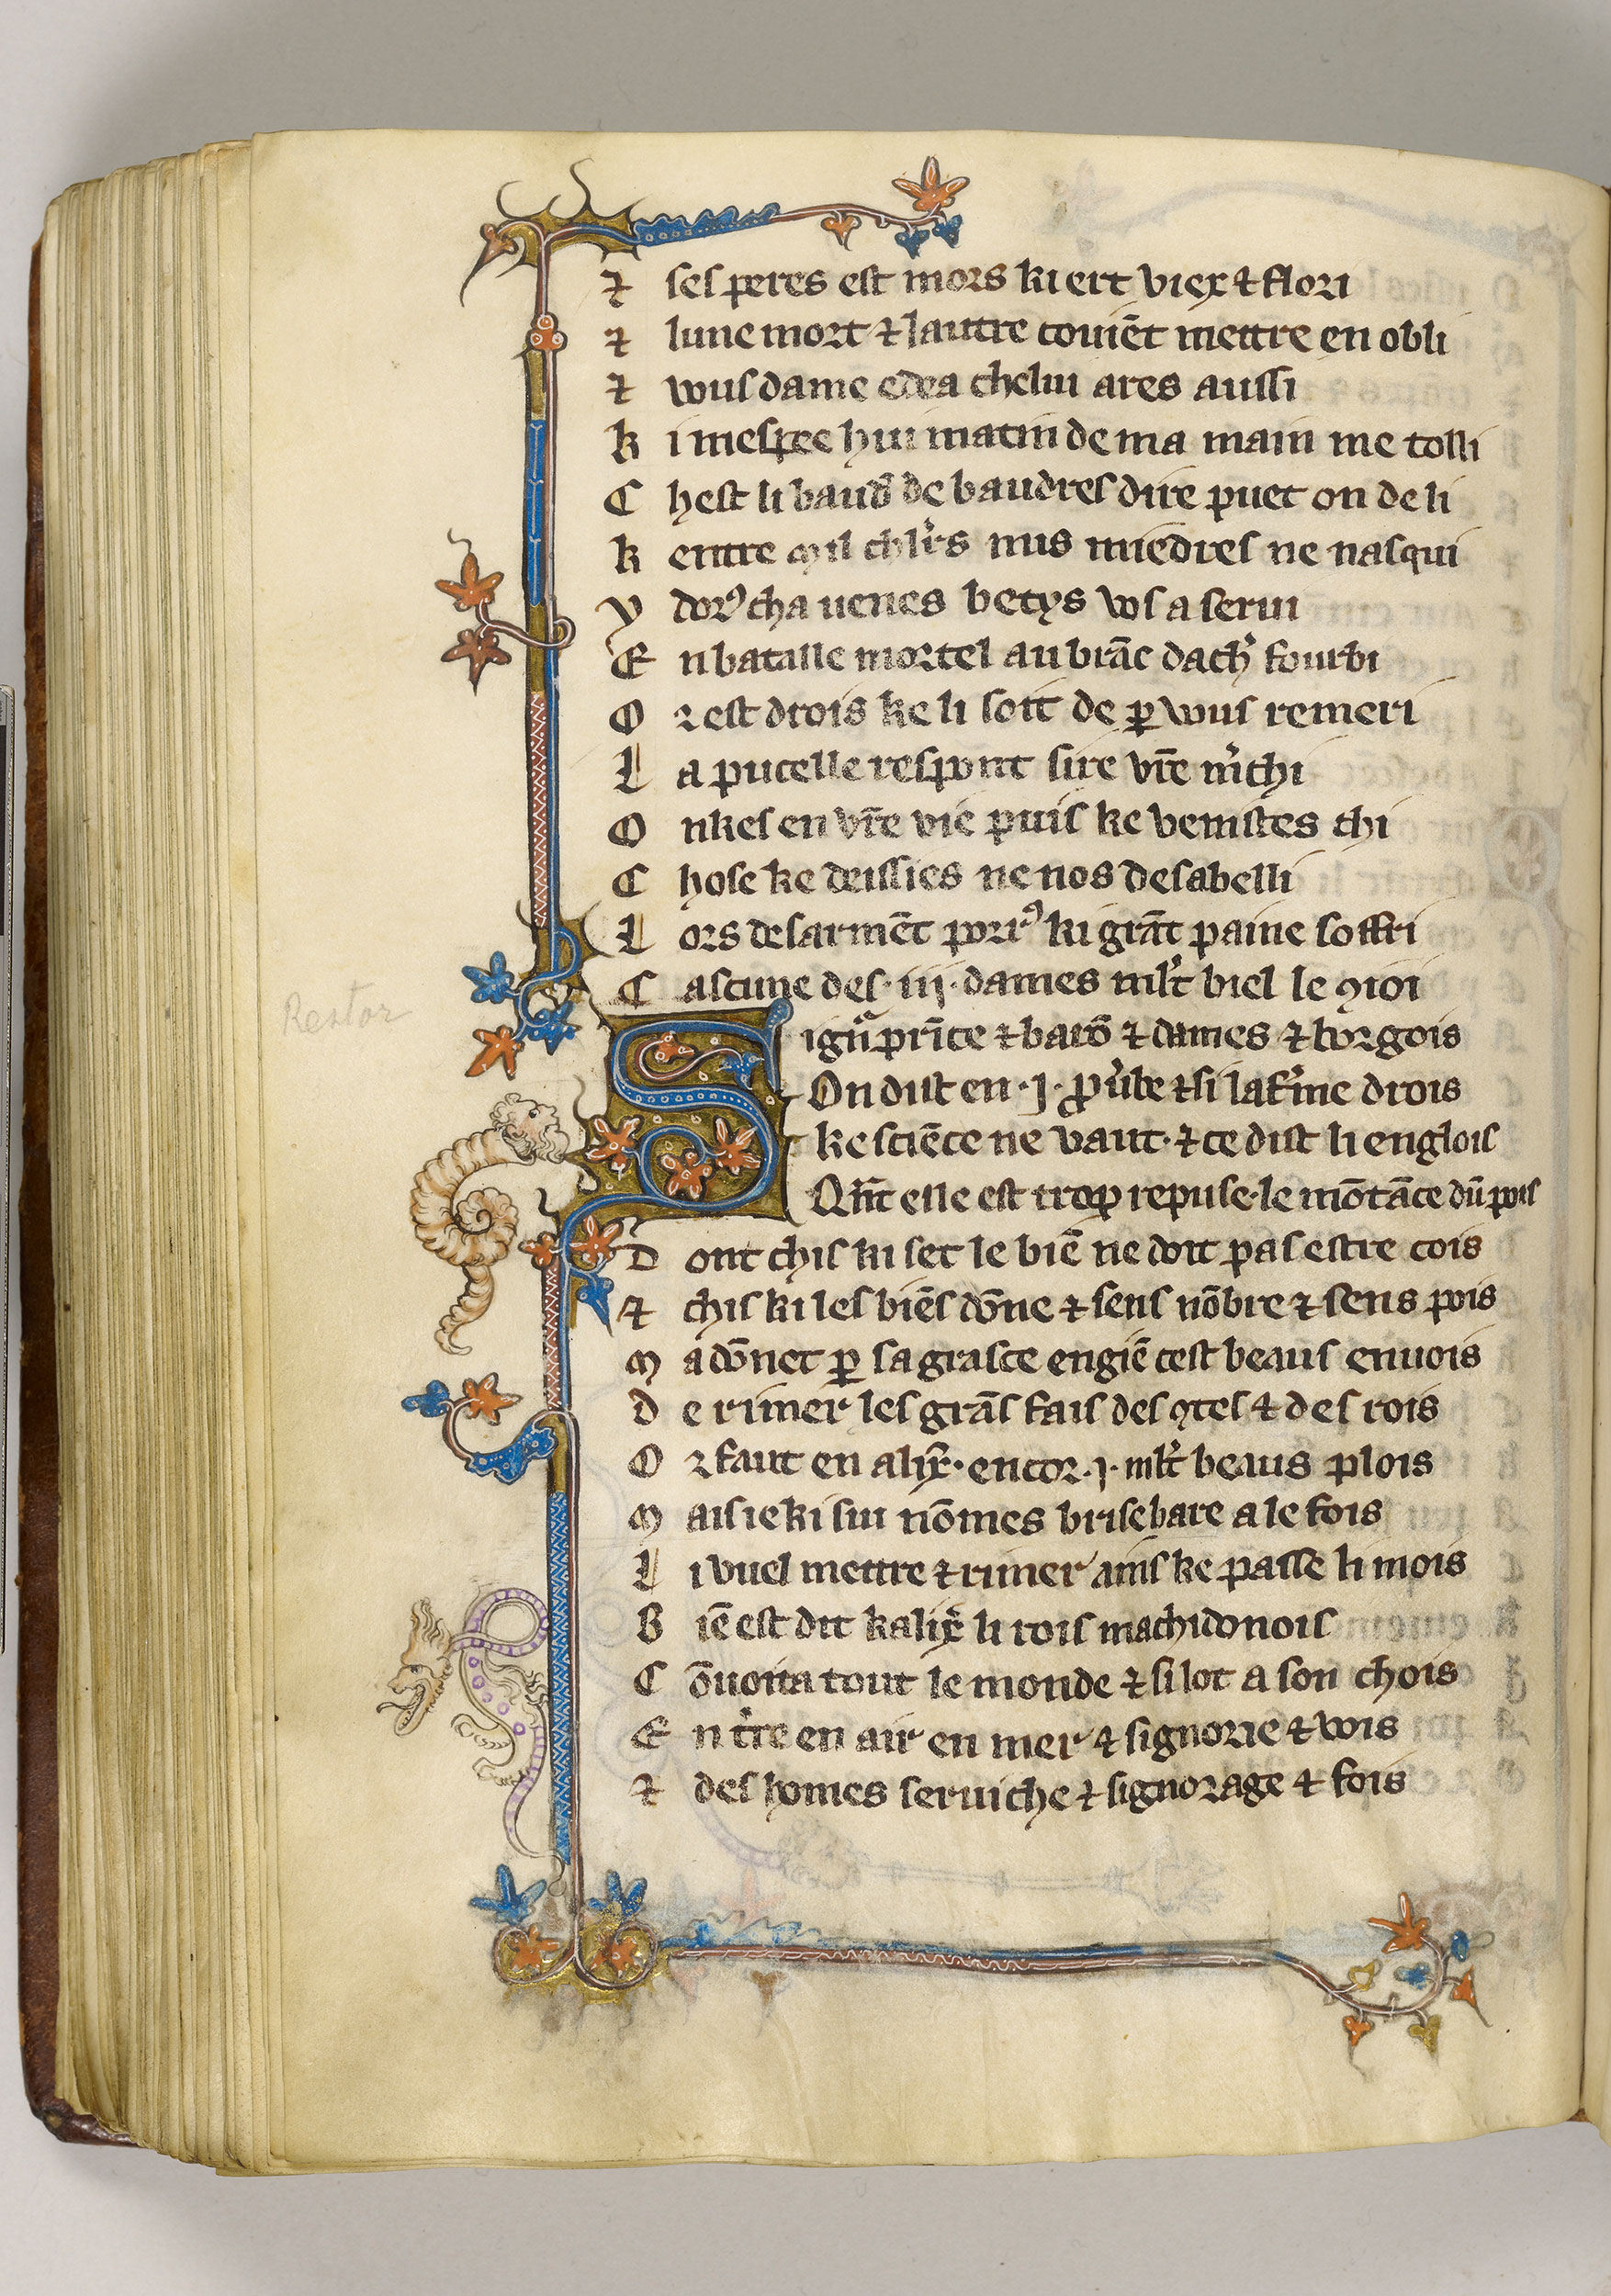 ⁊ ses peres est mors ki ert viex ⁊ flori
⁊ lune mort ⁊ lautre couiēt mettre en obli
⁊ vous dame edea chelui ares aussi
k i mespee hui matin de ma main me tolli
C hest li baud̄s de baudres dire puet on de li
k entre mil chl̄rs nus miedres ne nasqui
y dorꝰ cha uenes betys vos a serui
E n bataille mortel au brāc dachʼ fourbi
O r est drois ke li soit de ꝑ vous remeri
L a pucelle respont sire vr̄e mʼchi
O nkes en vr̄e vie puis ke venistes chi
C hose ke deissies ne nos desabelli
L ors desarmēt porrꝰ ki grāt paine soffri
C ascune des ·iij· dames ml̄t biel le ꝯioi
S ignʼ prīce ⁊ barō ⁊ dames ⁊ borgois
On dist en ·j· ꝓuʼbe ⁊ si lafʼme drois
ke sciēce ne vaut· ⁊ ce dist li englois
Qn̄t elle est trop repuse· le mōtāce dū pois
D ont chis ki set le biē ne doit pas estre cois
⁊ chis ki les biēs dōne ⁊ sens nōbre ⁊ sens pois
M a dōnet ꝑ sa grasce engiē cest beaus enuois
D e rimer les grās fais des ꝯtes ⁊ des rois
O r faut en alix̄· encor ·j· ml̄t beaus plois
M ais ie ki sui nōmes brisebare a le fois
L i vuel mettre ⁊ rimer ains ke passe li mois
B iē est dit kalix̄ li rois machidonois
C ōuoita tout le monde ⁊ si lot a son chois
E n tʼre en air en mer ⁊ signorie ⁊ vois
⁊ des homes seruiche ⁊ signorage ⁊ fois
Restor